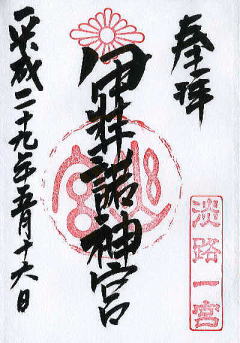 奉拝
淡路一宮
伊弉諾神宮
平成二十九年五月十六日